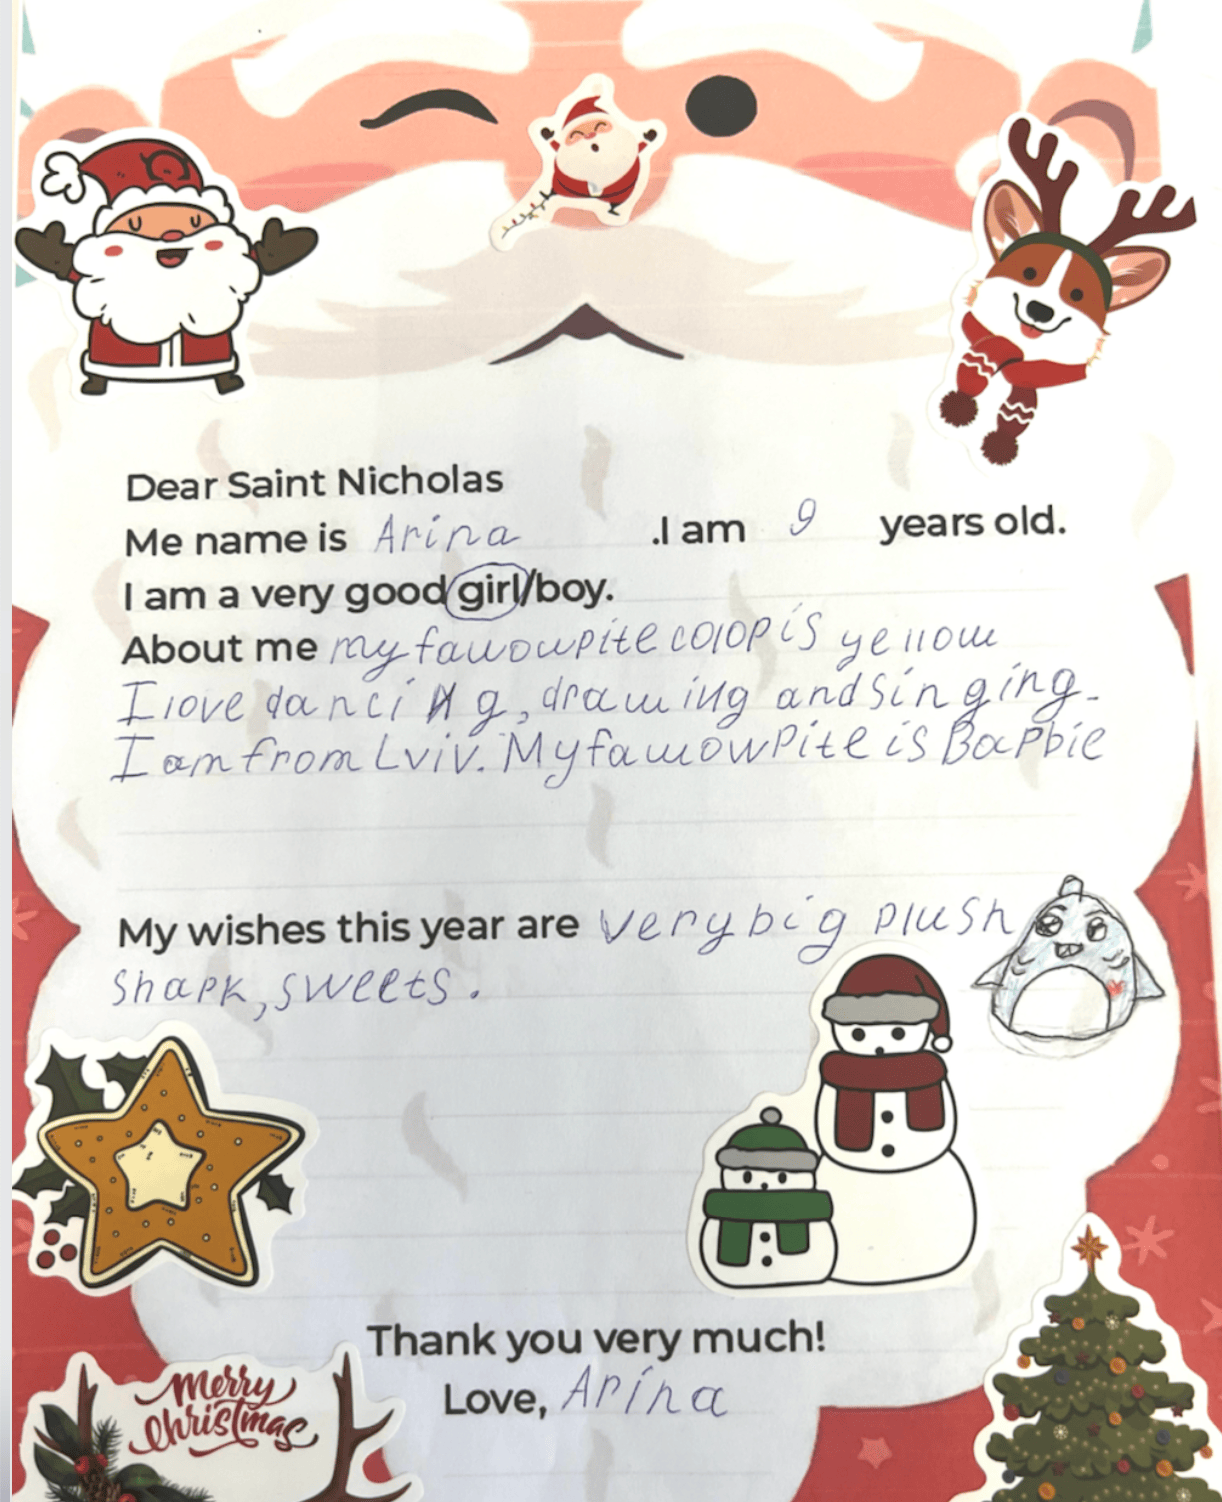 Dear Saint Nicholas
Me name is Arina .I am 9 years old.
I am a very good girl/boy.
About me my fawowpite colop is yellow
I love dancing, drawing and singing.
I am from Lviv. My fawowpite is Bapbie
My wishes this year are very big plush
shapk, sweets.
Thank you very much!
Love, Apina
Merry
Christmas